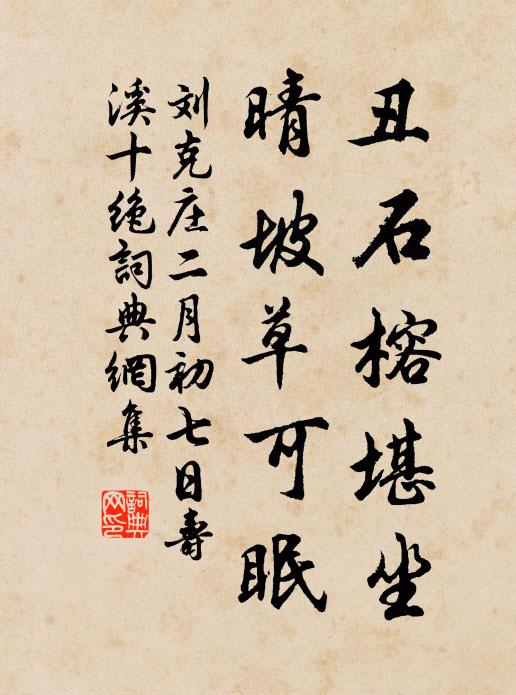 丑石榕堪坐
晴坡草可眠
刘克庄二月初七日寿
溪十绝詞典網集
詞典
网印